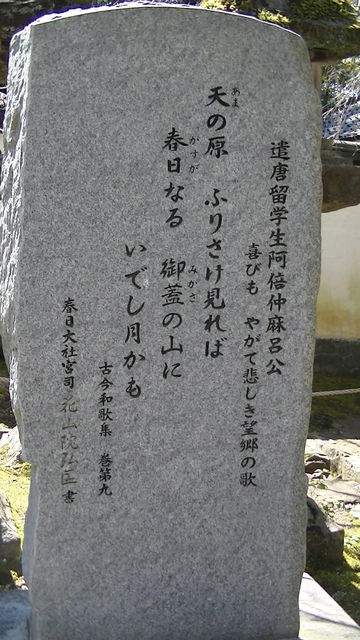 遣唐留学生阿倍仲麻呂公
喜びも　やがて悲しき望郷の歌
天の原　ふりさけ見れば
あま
春日なる　御蓋の山に
かすが
みかさ
いでし月かも
古今和歌集　巻第九
春日大社宮司　花山院弘匡　書